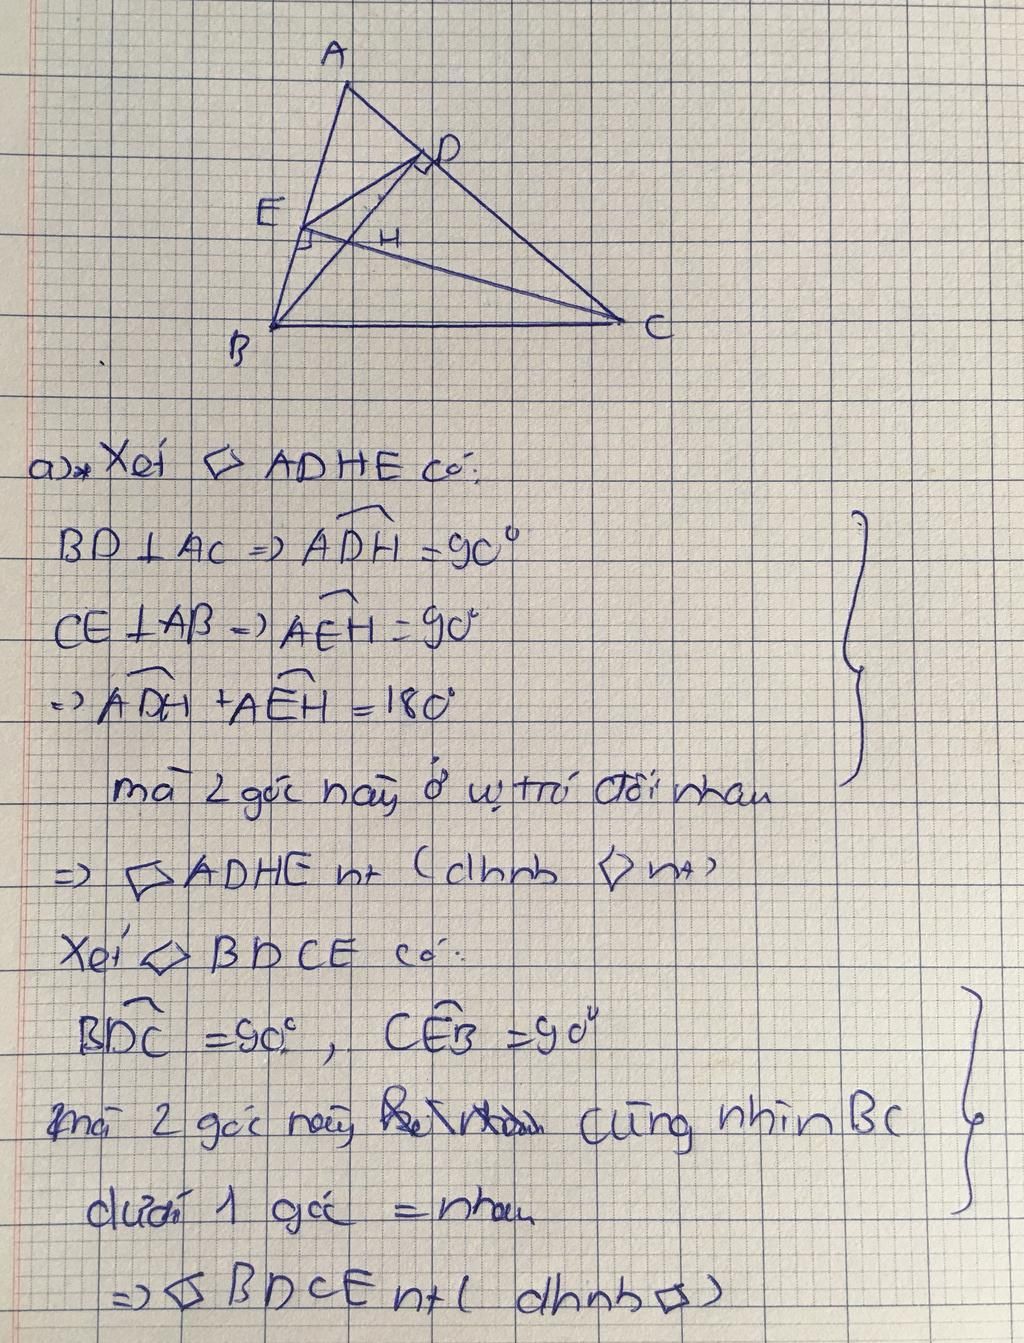 A
D
E
H
B
C
a)* Xét ◇ ADHE có:
BD ⊥ AC => ADH = 90°
CE ⊥ AB => AEH = 90°
=> ADH + AEH = 180°
mà 2 góc này ở vị trí đối nhau
=> ◇ ADHE nt (dhnb ◇ nt)
Xét ◇ BDCE có:
BDC = 90°, CEB = 90°
mà 2 góc này cùng nhìn BC
dưới 1 góc = nhau
=> ◇ BDCE nt ( dhnb ◇)